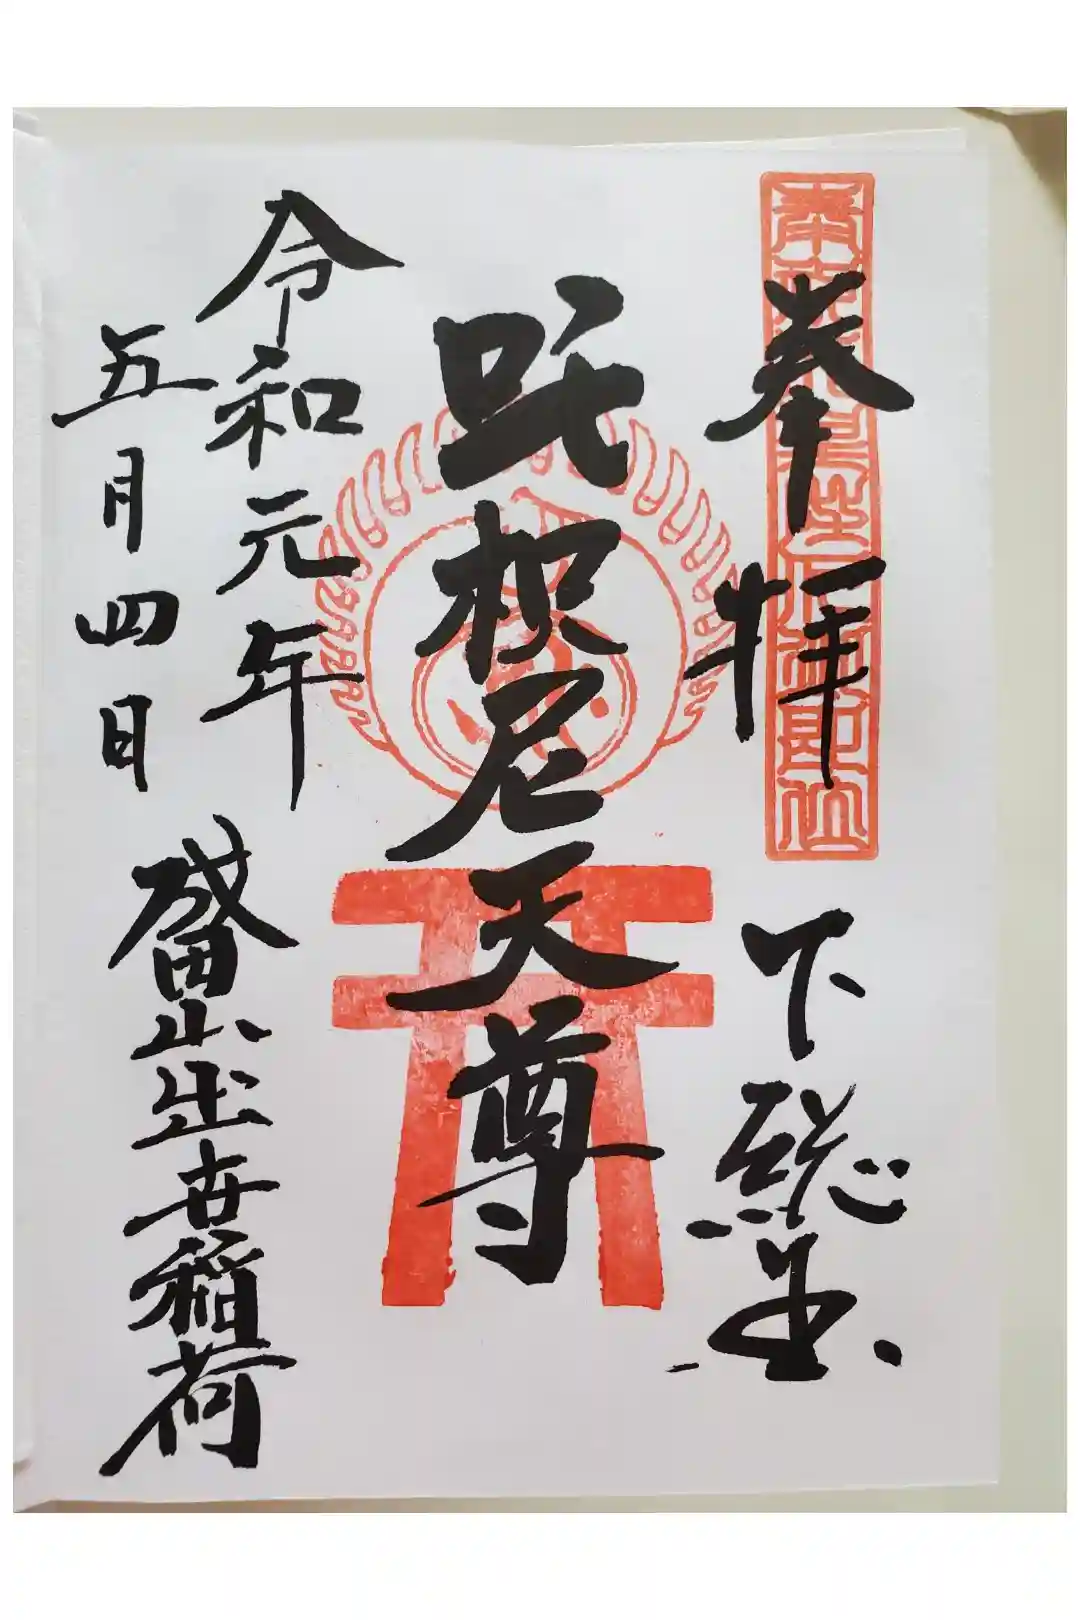 奉拝 下総国
吒枳尼天尊
令和元年
五月四日
成田山出世稲荷